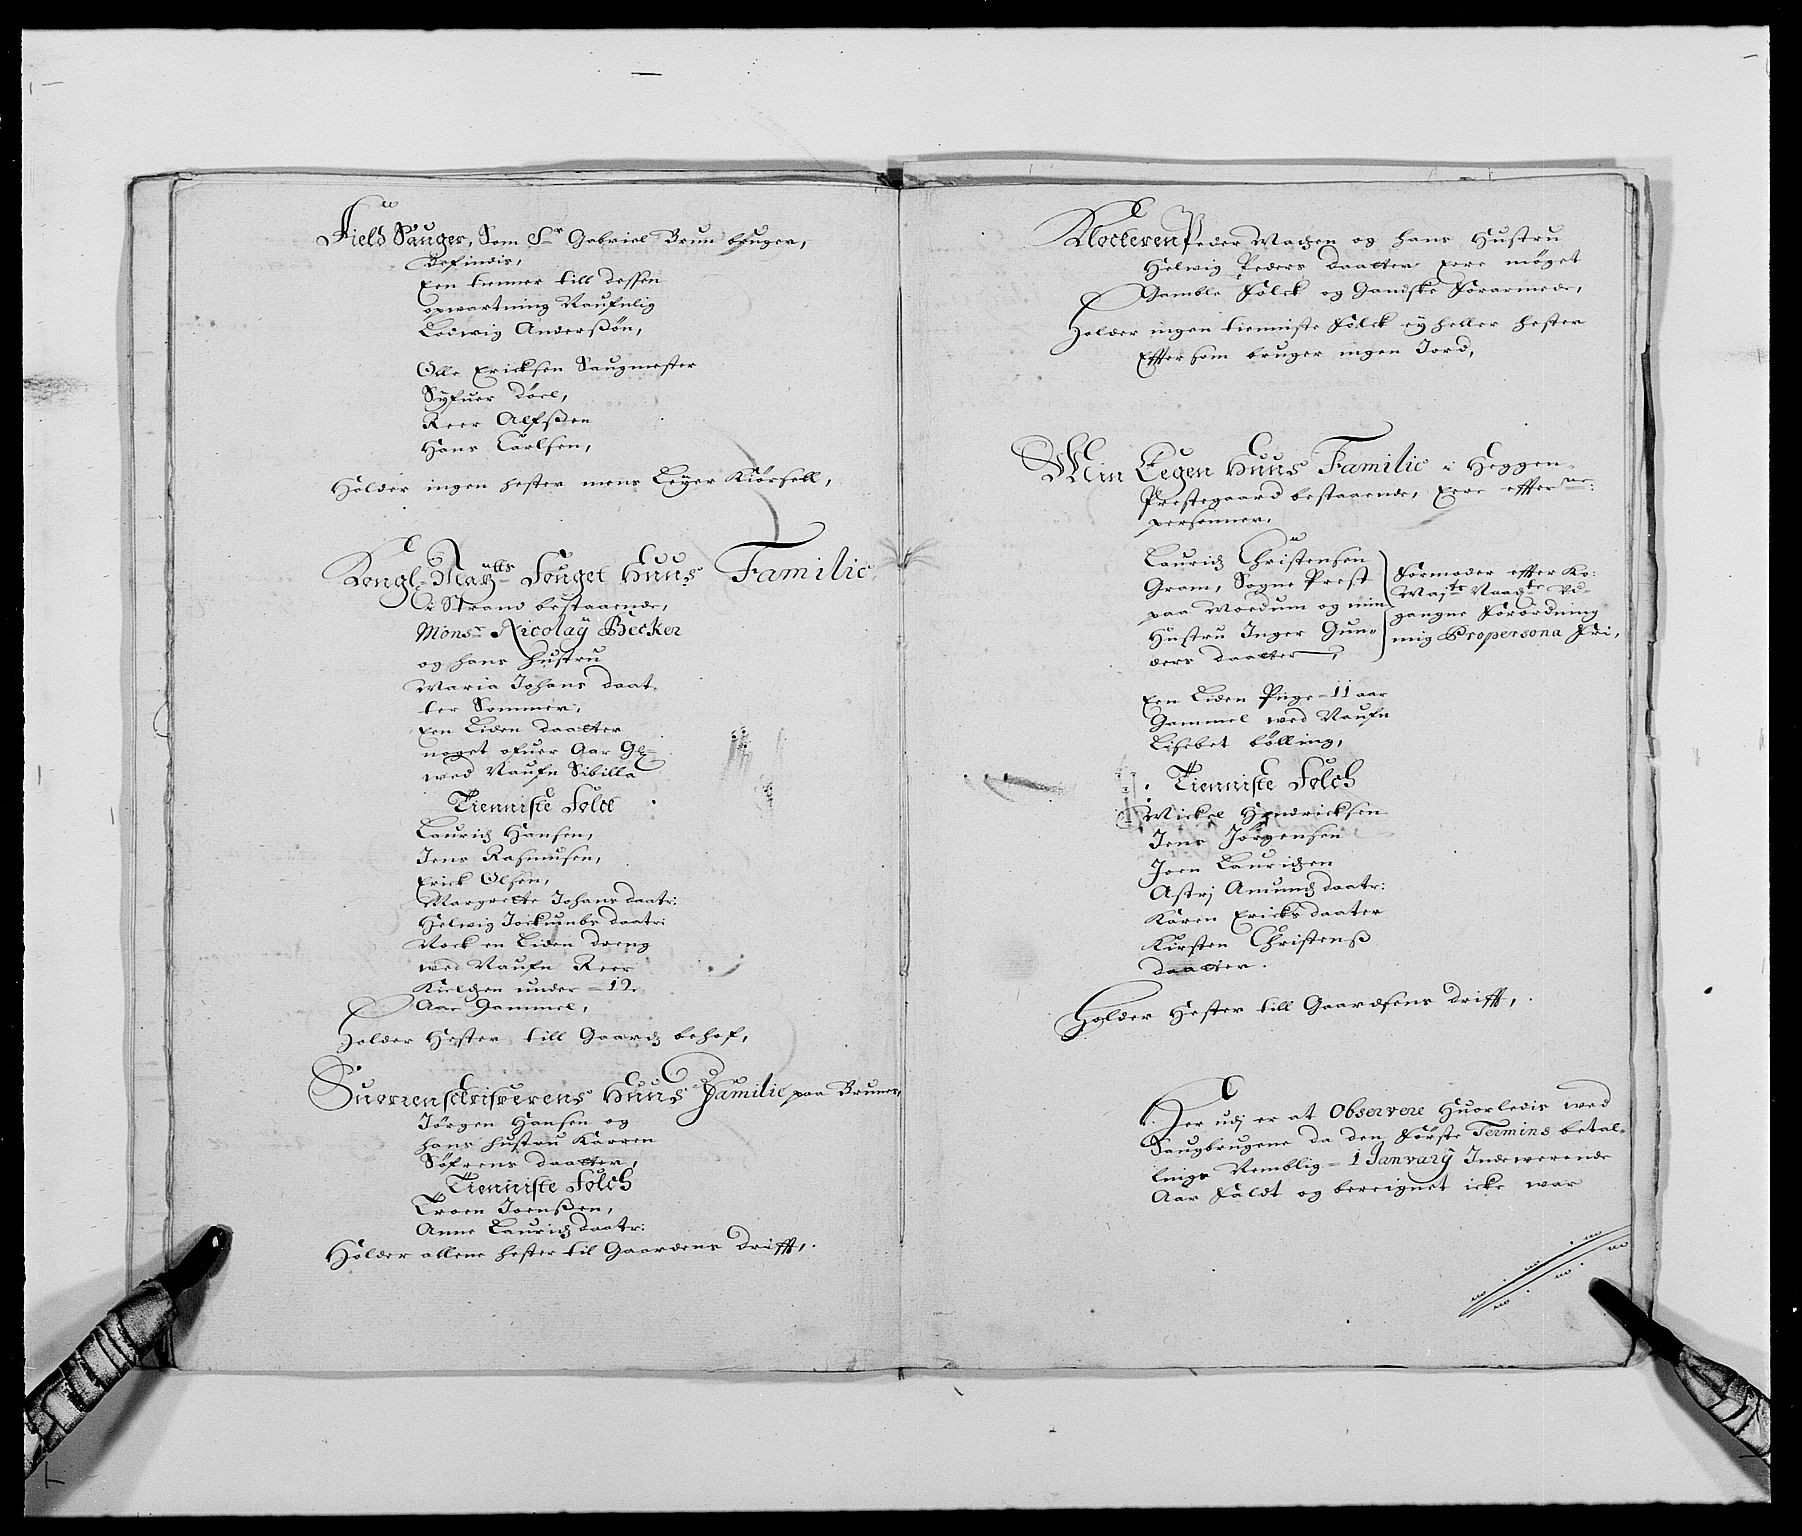 Field Sauger, Som Sr Gabriel Brun bruger,
Befindis,
Een tienner till dessen
opwartning Naufnlig
Lodwig Anderßøn,
Olle Ericksen Saugmester
Syfuer Doel,
Peer Olfßen
Hans Carlsen,
Holder ingen hester mens Leyer Kiørsell,
Kongl. Maytts Fouget Huus Familie,
i Strand bestaaende,
Monsr Nicolaÿ Becker
og hans hustru
Maria Johans daat,
ter Sommer,
Een Liden daatter
noget ofuer Aar Gl
wed Naufn Sibilla
Tienniste Folck
Lauridz Hansen,
Jens Rasmusen,
Erick Olsen,
Margrette Johans daatr:
Helwig Jockumbs daatr:
Nock en Liden dreng
wed Naufn Peer
Kieldzen under = 12.
Aar Gammel,
Holder Hester till Gaardz behof,
Suorenschrifuerens Huus Familie paa Bruner,
Jørgen Hansen og
hans hustru Karren
Søfrens daatter,
Tienniste Folch
Troen Joenßen,
Anne Lauridz daatr:
Holder allene hester til Gaardens drifft,
Klocheren Peder Madzen og hans Hustru
Helwig Peders daatter Ere møget
Gamble Folck og Gandske Forarmede,
Holder ingen tienniste Folck eÿ heller hester
Effter som bruger ingen Jord,
Min Eegen Huus Familie i Heggen
Prestegaard bestaaende, Ere effterne:
personner,
Lauridz Christensen
Gram, Sogne Prest
paa Modum og min
Hustru Inger Gun=
ders daatter,
Formoder effter Ko:
Mayts Naadte Ud=
gangne Forordning
mig Propersona Fri,
Een Liden Piige = 11 aar
Gammel wed Naufn
Lisebet bølling,
Tienniste Folch
Mickel Hendricksen
Jens Jørgensen
Joen Lauridzen
Astrj Amundz daatr:
Karen Ericks daater
Kirsten Christenß
daatter.
Holder Hester till Gaardsens drifft,
Her udj er at Observere Huorledis wed
Saugbrugene da den Første Termins betal=
lings Nemblig = 1 Janvarÿ Indewerende
Aar Faldt og bereignet icke war